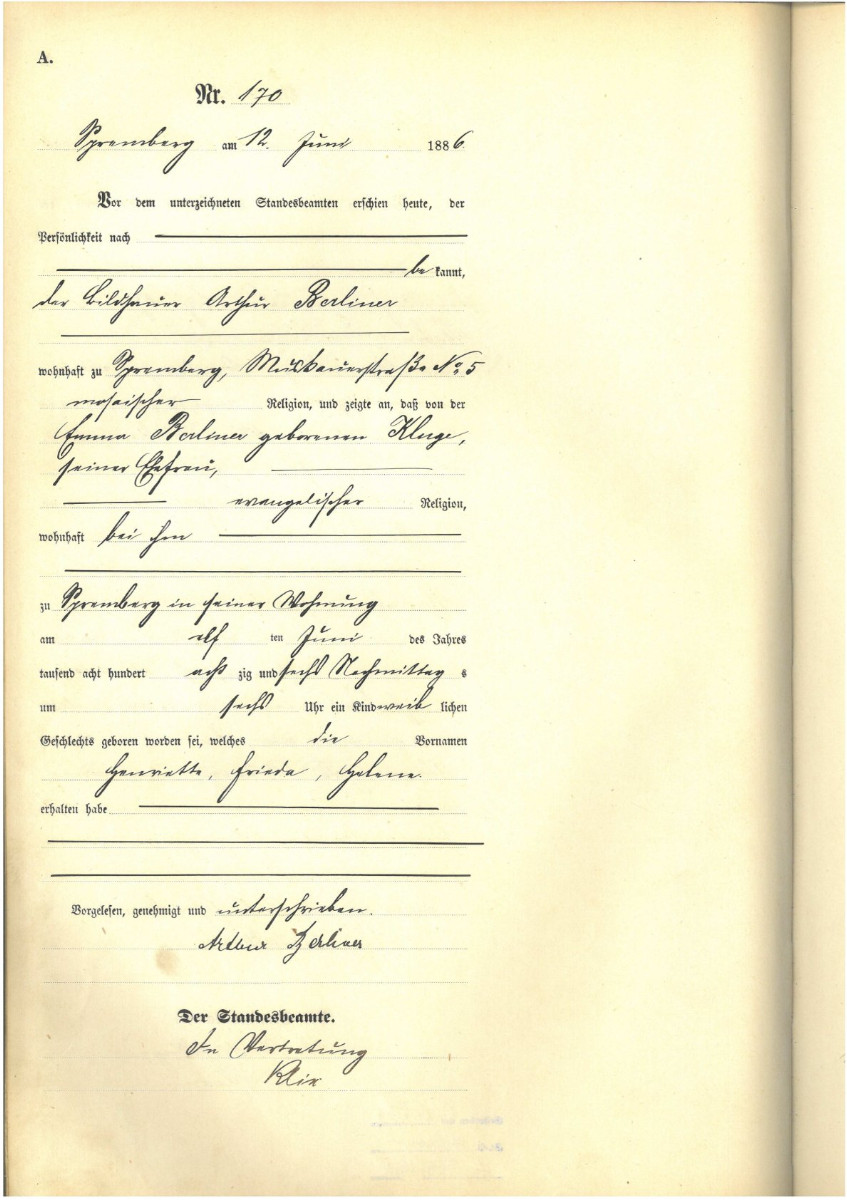 A.
Nr. 170
Spremberg am 12. Juni 1886.
Vor dem unterzeichneten Standesbeamten erschien heute, der
Persönlichkeit nach
be kannt,
der Bildhauer Arthur Berliner
wohnhaft zu Spremberg, Muskauerstraße No 5
mosaischer Religion, und zeigte an, daß von der
Emma Berliner geborenen Kluge,
seiner Ehefrau,
evangelischer Religion,
wohnhaft bei ihm
zu Spremberg in seiner Wohnung
am elf ten Juni des Jahres
tausend acht hundert acht zig und sechs Nachmittag s
um sechs Uhr ein Kind weib lichen
Geschlechts geboren worden sei, welches die Vornamen
Henriette, Frieda, Helene.
erhalten habe
Vorgelesen, genehmigt und unterschrieben.
Arthur Berliner
Der Standesbeamte.
In Vertretung
Klix